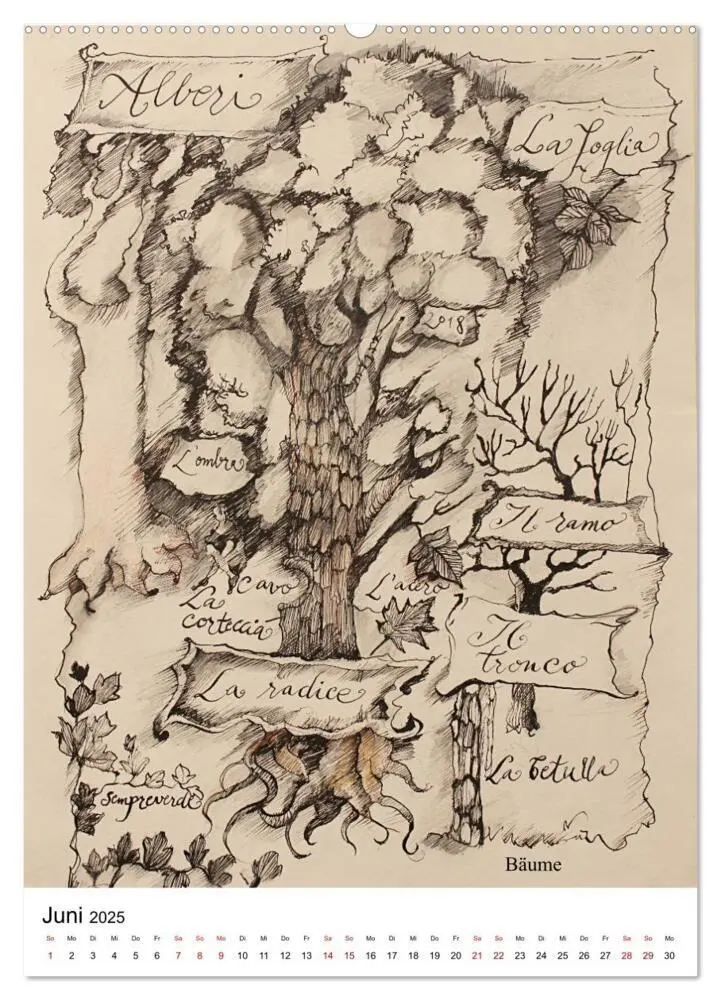 Alberi
La foglia
2018
L'ombra
Il ramo
Cavo
L'acero
La
corteccia
Il
tronco
La radice
La betulla
sempreverde
Bäume
Juni 2025
So Mo Di Mi Do Fr Sa So Mo Di Mi Do Fr Sa So Mo Di Mi Do Fr Sa So Mo Di Mi Do Fr Sa So Mo
1 2 3 4 5 6 7 8 9 10 11 12 13 14 15 16 17 18 19 20 21 22 23 24 25 26 27 28 29 30